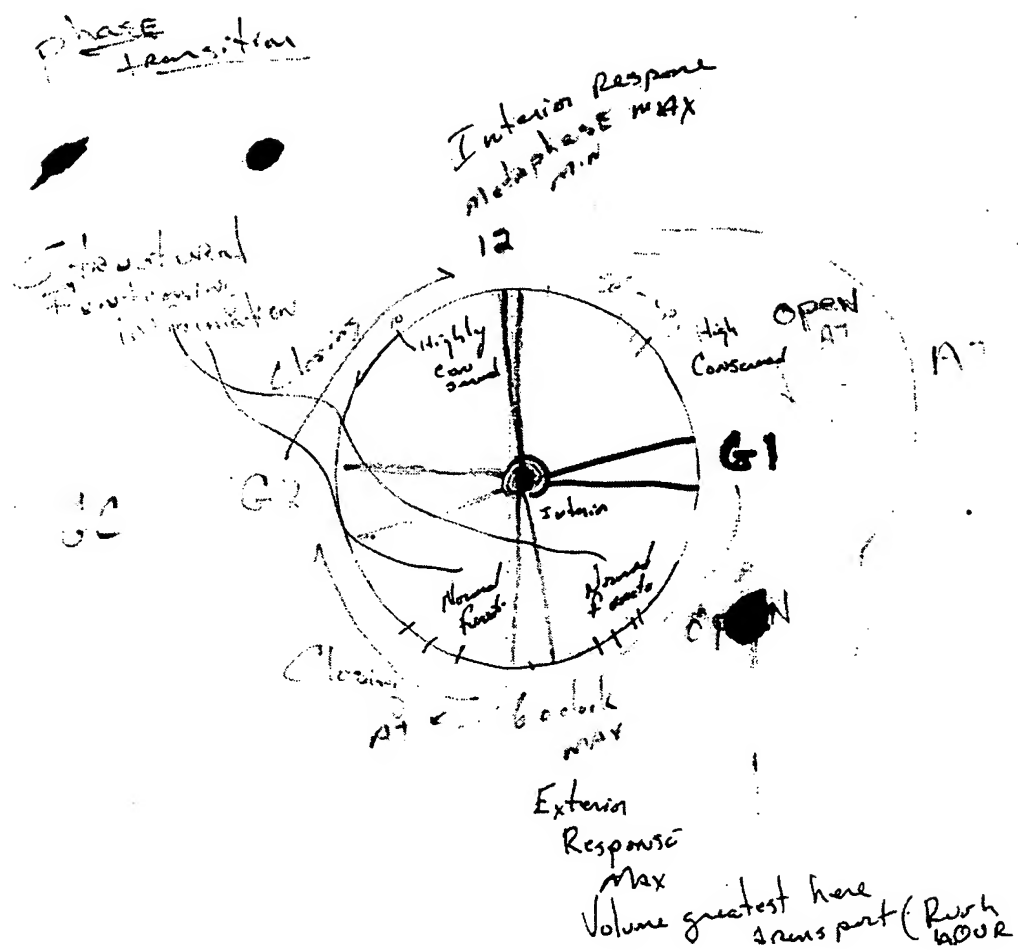 phase
transition
Interior Response
Metaphase MAX
MIN
12
Structural
Functioning
information
Closing
Highly
con
served
High
Conserved
OPEN
A7
G1
G2
Interior
Normal
Funct.
Normal
Functo
OPEN
Closing
6 oclock
MAX
Exterior
Response
MAX
Volume greatest here
transport (Rush
HOUR